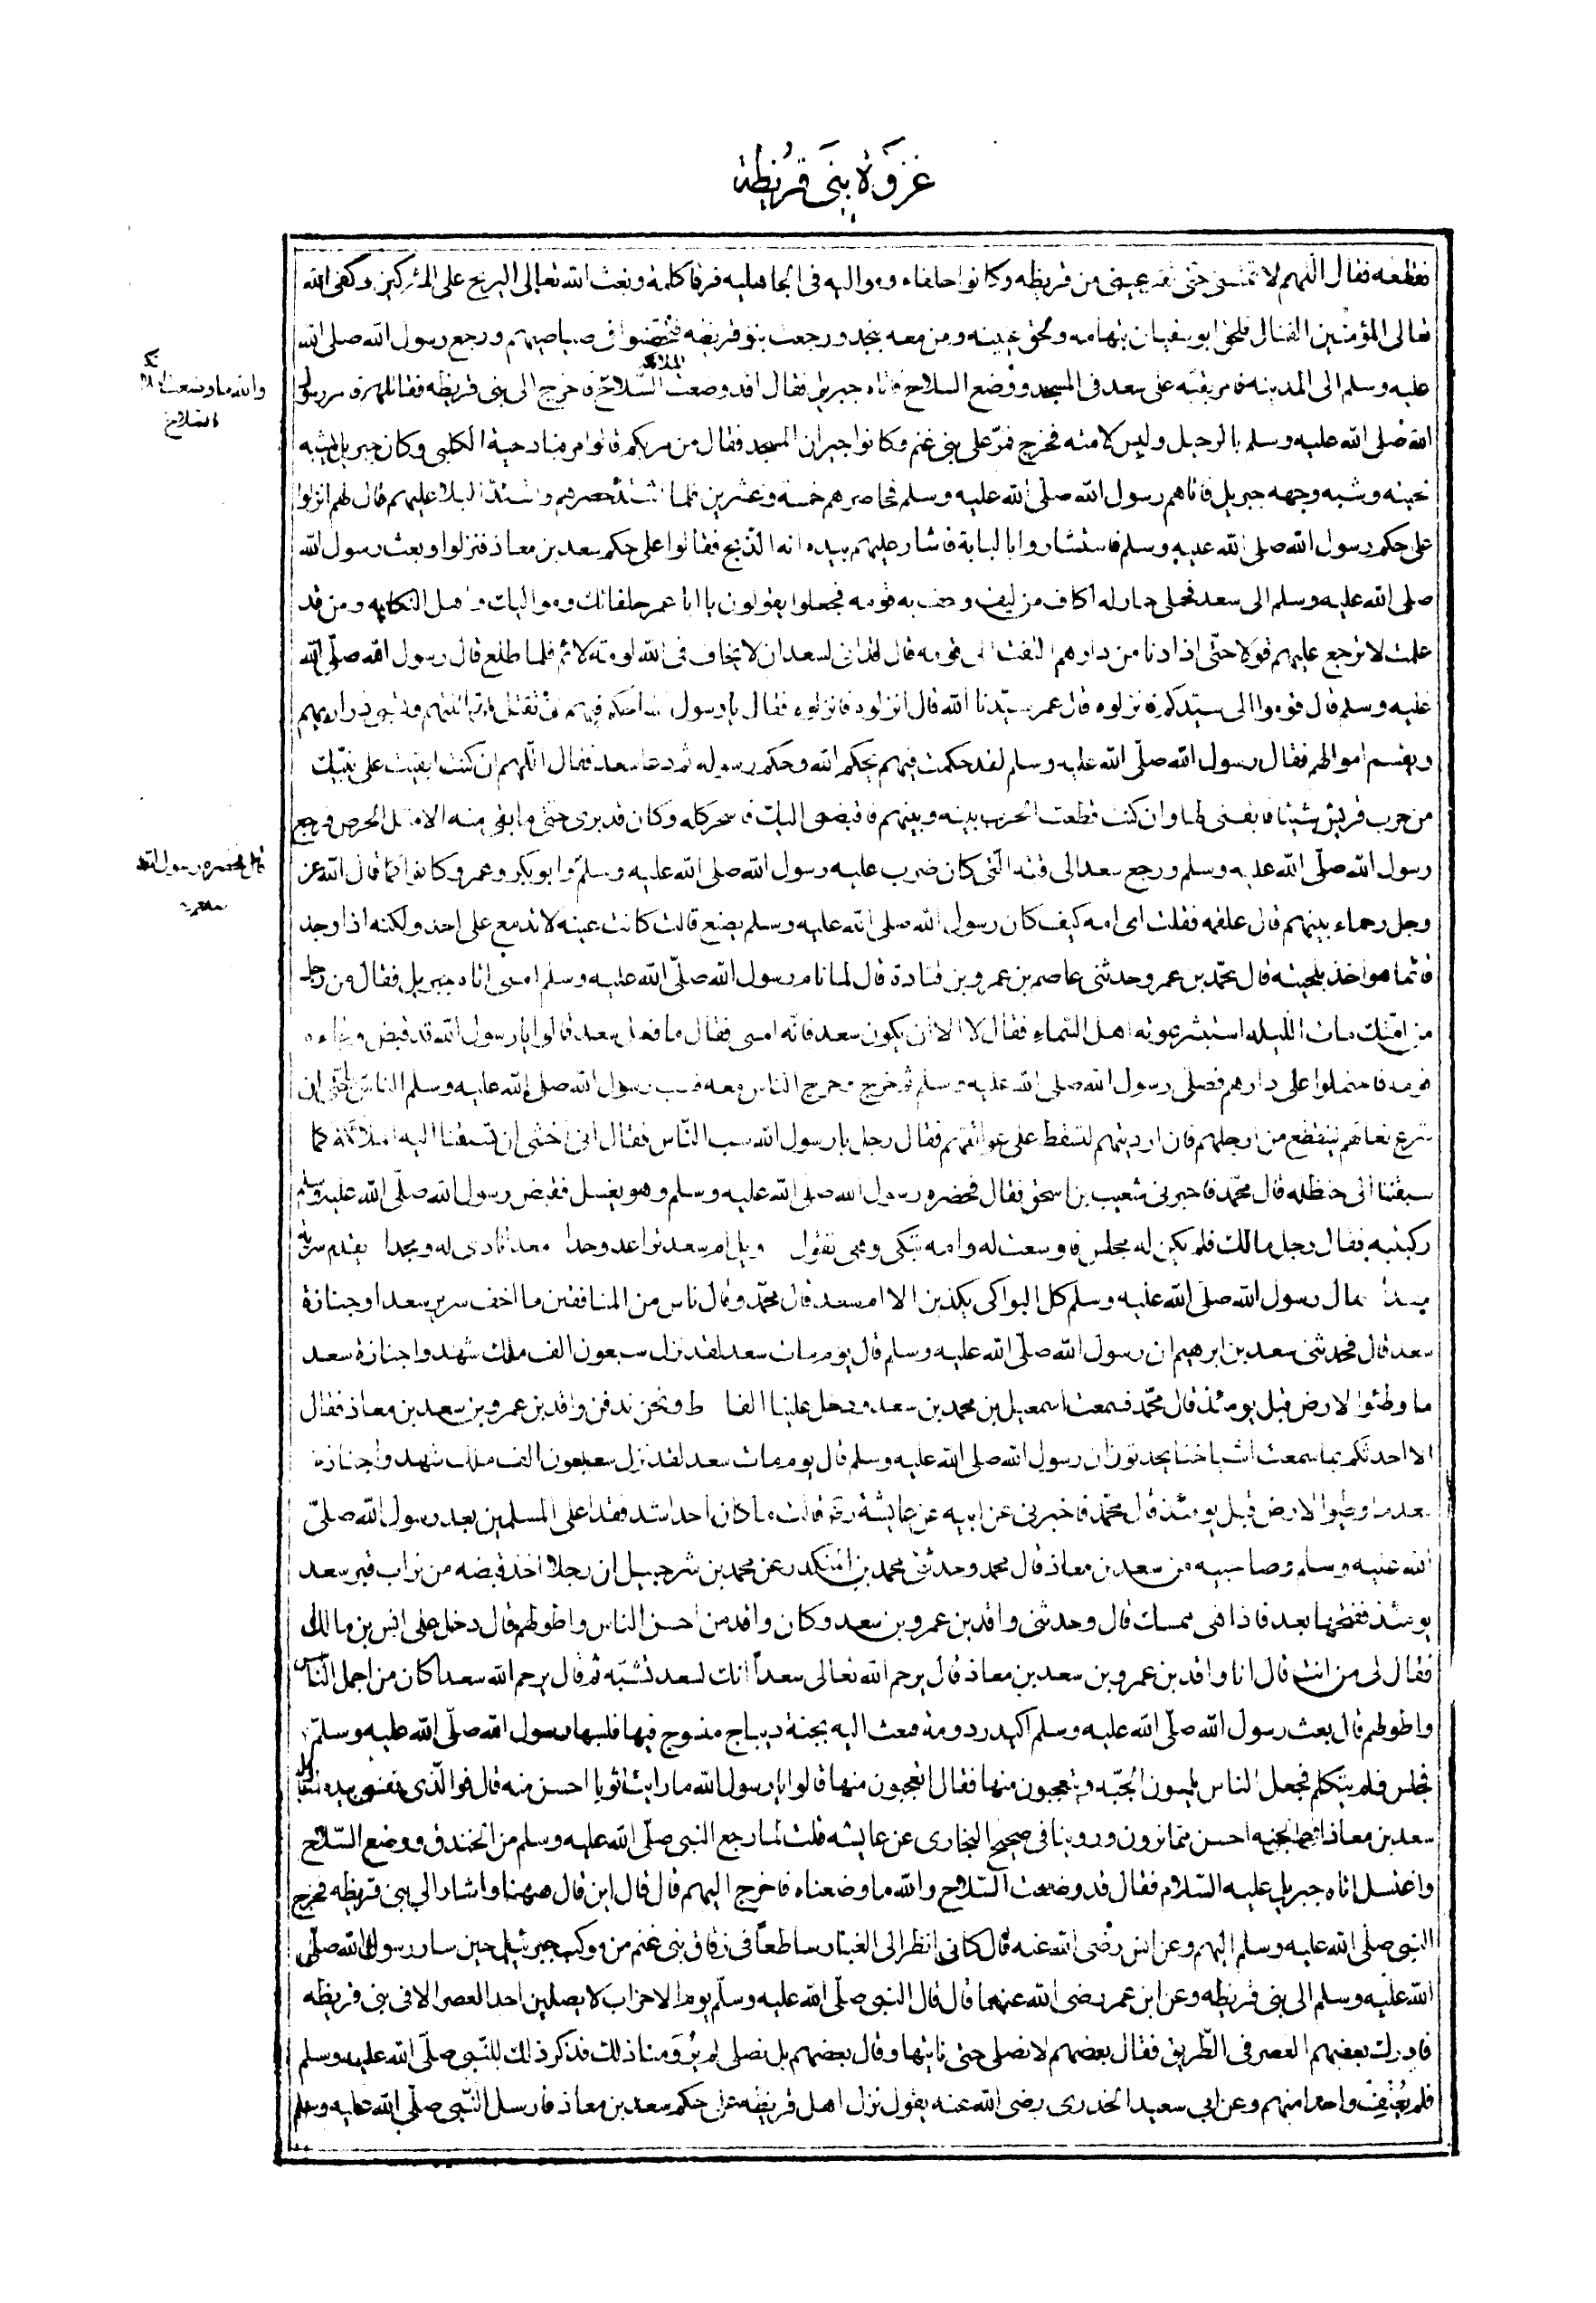 غَزوَةُ بِنَى قُرَيْظَة
فقطعه فقال اللهم لا تمتنى حتى تقر عينى من قريظه وكانوا حلفاءه ومواليه فى الجاهليه فرقا كلمه وبعث الله تعالى الريح على المشركين وكفى الله
تعالى المؤمنين القتال فلحق ابوسفيان بتهامه ولحق عيينه ومن معه بنجد ورجعت بنو قريظه فتحصنوا فى صياصيهم ورجع رسول الله صلى الله
عليه وسلم الى المدينه فامر بقبه على سعد فى المسجد ووضع السلاح فاتاه جبريل فقال اقد وضعت السلاح فاخرج الى بنى قريظه فقاتلهم فامر رسول
والله ما وضعت الملائكه السلاح
الله صلى الله عليه وسلم بالرحيل ولبس لامته فخرج فمرّ على بنى غنم وكانوا جيران المسجد فقال من مر بكم قالوا مر منا دحية الكلبى وكان جبريل يشبه
لحيته وشبه وجهه جبريل فاتاهم رسول الله صلى الله عليه وسلم فحاصرهم خمسة وعشرين فلما اشتدّ حصرهم واشتدّ البلا عليهم قال لهم انزلوا
على حكم رسول الله صلى الله عليه وسلم فاستشاروا ابا لبابة فاشار عليهم بيده انه الذبح فقالوا على حكم سعد بن معاذ فنزلوا وبعث رسول الله
صلى الله عليه وسلم الى سعد فحمل على حمار له اكاف من ليف وحف به قومه فجعلوا يقولون يا ابا عمر حلفائك ومواليك واهل النكايه ومن قد
علمت لا نرجع عليهم قولا حتى اذا دنا من دارهم التفت الى قومه قال لقد انى لسعد ان لا يخاف فى الله لومة لائم فلما طلع قال رسول الله صلى الله
عليه وسلم قال قوموا الى سيدكم فانزلوه قال عمر سيّدنا الله قال انزلوه فانزلوه فقال يا رسول الله احكم فيهم ان تقتل مقاتلتهم وتسبى ذراريهم
وتقسم اموالهم فقال رسول الله صلى الله عليه وسلم لقد حكمت فيهم بحكم الله وحكم رسوله ثم دعا سعد فقال اللهم ان كنت ابقيت على نبيك
من حرب قريش شيئا فابقنى لها وان كنت قطعت الحرب بينه وبينهم فاقبضنى اليك فانفجر كلمه وكان قد برى حتى ما بقى منه الا مثل الخرص فرجع
رسول الله صلى الله عليه وسلم ورجع سعد الى قبته التى كان ضرب عليه رسول الله صلى الله عليه وسلم وابو بكر وعمر وكانوا كما قال الله عز
قالت فحضره رسول الله صلعم
وجل رحماء بينهم قال علقمه فقلت اى امه كيف كان رسول الله صلى الله عليه وسلم يصنع قالت كانت عينه لا تدمع على احد ولكنه اذا وجد
فانما هو اخذ بلحيته قال محمد بن عمر وحدثنى عاصم بن عمرو بن قتادة قال لما نام رسول الله صلى الله عليه وسلم امسى اتاه جبريل فقال من رجل
من امّتك مات الليله استبشر بموته اهل السماء فقال لا الا ان يكون سعد فانه امسى فقال ما فعل سعد قالوا يا رسول الله قد قبض وجاءه
قومه فاحتملوا على دارهم فصلى رسول الله صلى الله عليه وسلم ثم خرج وخرج الناس معه رسول الله صلى الله عليه وسلم الناس حتى ان
نعالهم لينقطع من ارجلهم فان ارديتهم لتسقط على عواتقهم فقال رجل يا رسول الله سب النّاس فقال انى اخشى ان تسبقنا اليه الملائكة كما
سبقتنا الى حنظله قال محمّد فاخبرنى شعيب بن اسحق فقال فحضره رسول الله صلى الله عليه وسلم وهو يغسل فقبض رسول الله صلى الله عليه وسلم
ركبتيه فقال رجل مالك فلم يكن له مجلس فاوسعت له وامه تبكى وهى تقول ويل ام سعد
قال رسول الله صلى الله عليه وسلم كل البواكى يكذبن الا ام سعد قال محمّد وقال ناس من المنافقين ما اخف سرير سعد او جنازة
سعد قال فحدثنى سعد بن ابرهيم ان رسول الله صلّى الله عليه وسلم قال يوم مات سعد لقد نزل سبعون الف ملك شهدوا جنازة سعد
ما وطئوا الارض قبل يومئذ قال محمّد فسمعت اسمعيل بن محمد بن سعد ودخل علينا ونحن ندفن واقد بن عمرو بن سعد بن معاذ فقال
الا احدثكم بما سمعت اشياخنا يحدثون ان رسول الله صلى الله عليه وسلم قال يوم مات سعد لقد نزل سبعون الف ملك شهدوا جنازة
سعد ما وطئوا الارض قبل يومئذ قال محمّد فاخبرنى عن ابيه عن عايشة قالت ما كان احد اشد فقدا على المسلمين بعد رسول الله صلّى
الله عليه وسلم وصاحبيه من سعد بن معاذ قال محمد وحدثنى محمد بن المنكدر عن محمد بن شرحبيل ان رجلا اخذ قبضه من تراب قبر سعد
يومئذ ففتحها بعد فاذا هى مسك قال وحدثنى واقد بن عمرو بن سعد وكان واقد من احسن الناس واطولهم قال دخل على انس بن مالك
فقال لى من انت قال انا واقد بن عمرو بن سعد بن معاذ قال يرحم الله تعالى سعداً انك لسعد تشبّه ثم قال يرحم الله سعدا كان من اجمل النّاس
واطولهم قال بعث رسول الله صلّى الله عليه وسلم اكيدر دومة فبعث اليه بجبة ديباج منسوج فيها فلبسها رسول الله صلّى الله عليه وسلّم
فجلس فلم يتكلم فجعل الناس يلمسون الجبّه ويعجبون منها فقال اتعجبون منها قالوا يا رسول الله ما راينا ثوبا احسن منه قال فو الّذى نفسى بيده لمناديل
سعد بن معاذ الجنه احسن مما ترون وروينا فى صحيح البخارى عن عايشه قلت لما رجع النبى صلّى الله عليه وسلم من الخندق ووضع السّلاح
واغتسل اتاه جبريل عليه السّلام فقال قد وضعت السّلاح والله ما وضعناه فاخرج اليهم قال قال اين قال ههنا واشار الى بنى قريظه فخرج
النبى صلّى الله عليه وسلم اليهم وعن انس رضى الله عنه قال كانى انظر الى الغبار ساطعاً فى زقاق بنى غنم من موكب جبرئيل حين سار رسول الله صلّى
الله عليه وسلم الى بنى قريظه وعن ابن عمر رضى الله عنهما قال قال النبى صلّى الله عليه وسلّم يوم الاحزاب لا يصلين احد العصر الا فى بنى قريظه
فادرك بعضهم العصر فى الطّريق فقال بعضهم لا نصلى حتى ناتيها وقال بعضهم بل نصلى لم يُرَد منا ذلك فذكر ذلك للنّبى صلّى الله عليه وسلم
فلم يُعنِّف واحدا منهم وعن ابى سعيد الخدرى رضى الله عنه يقول نزل اهل قريظه على حكم سعد بن معاذ فارسل النّبى صلّى الله عليه وسلم